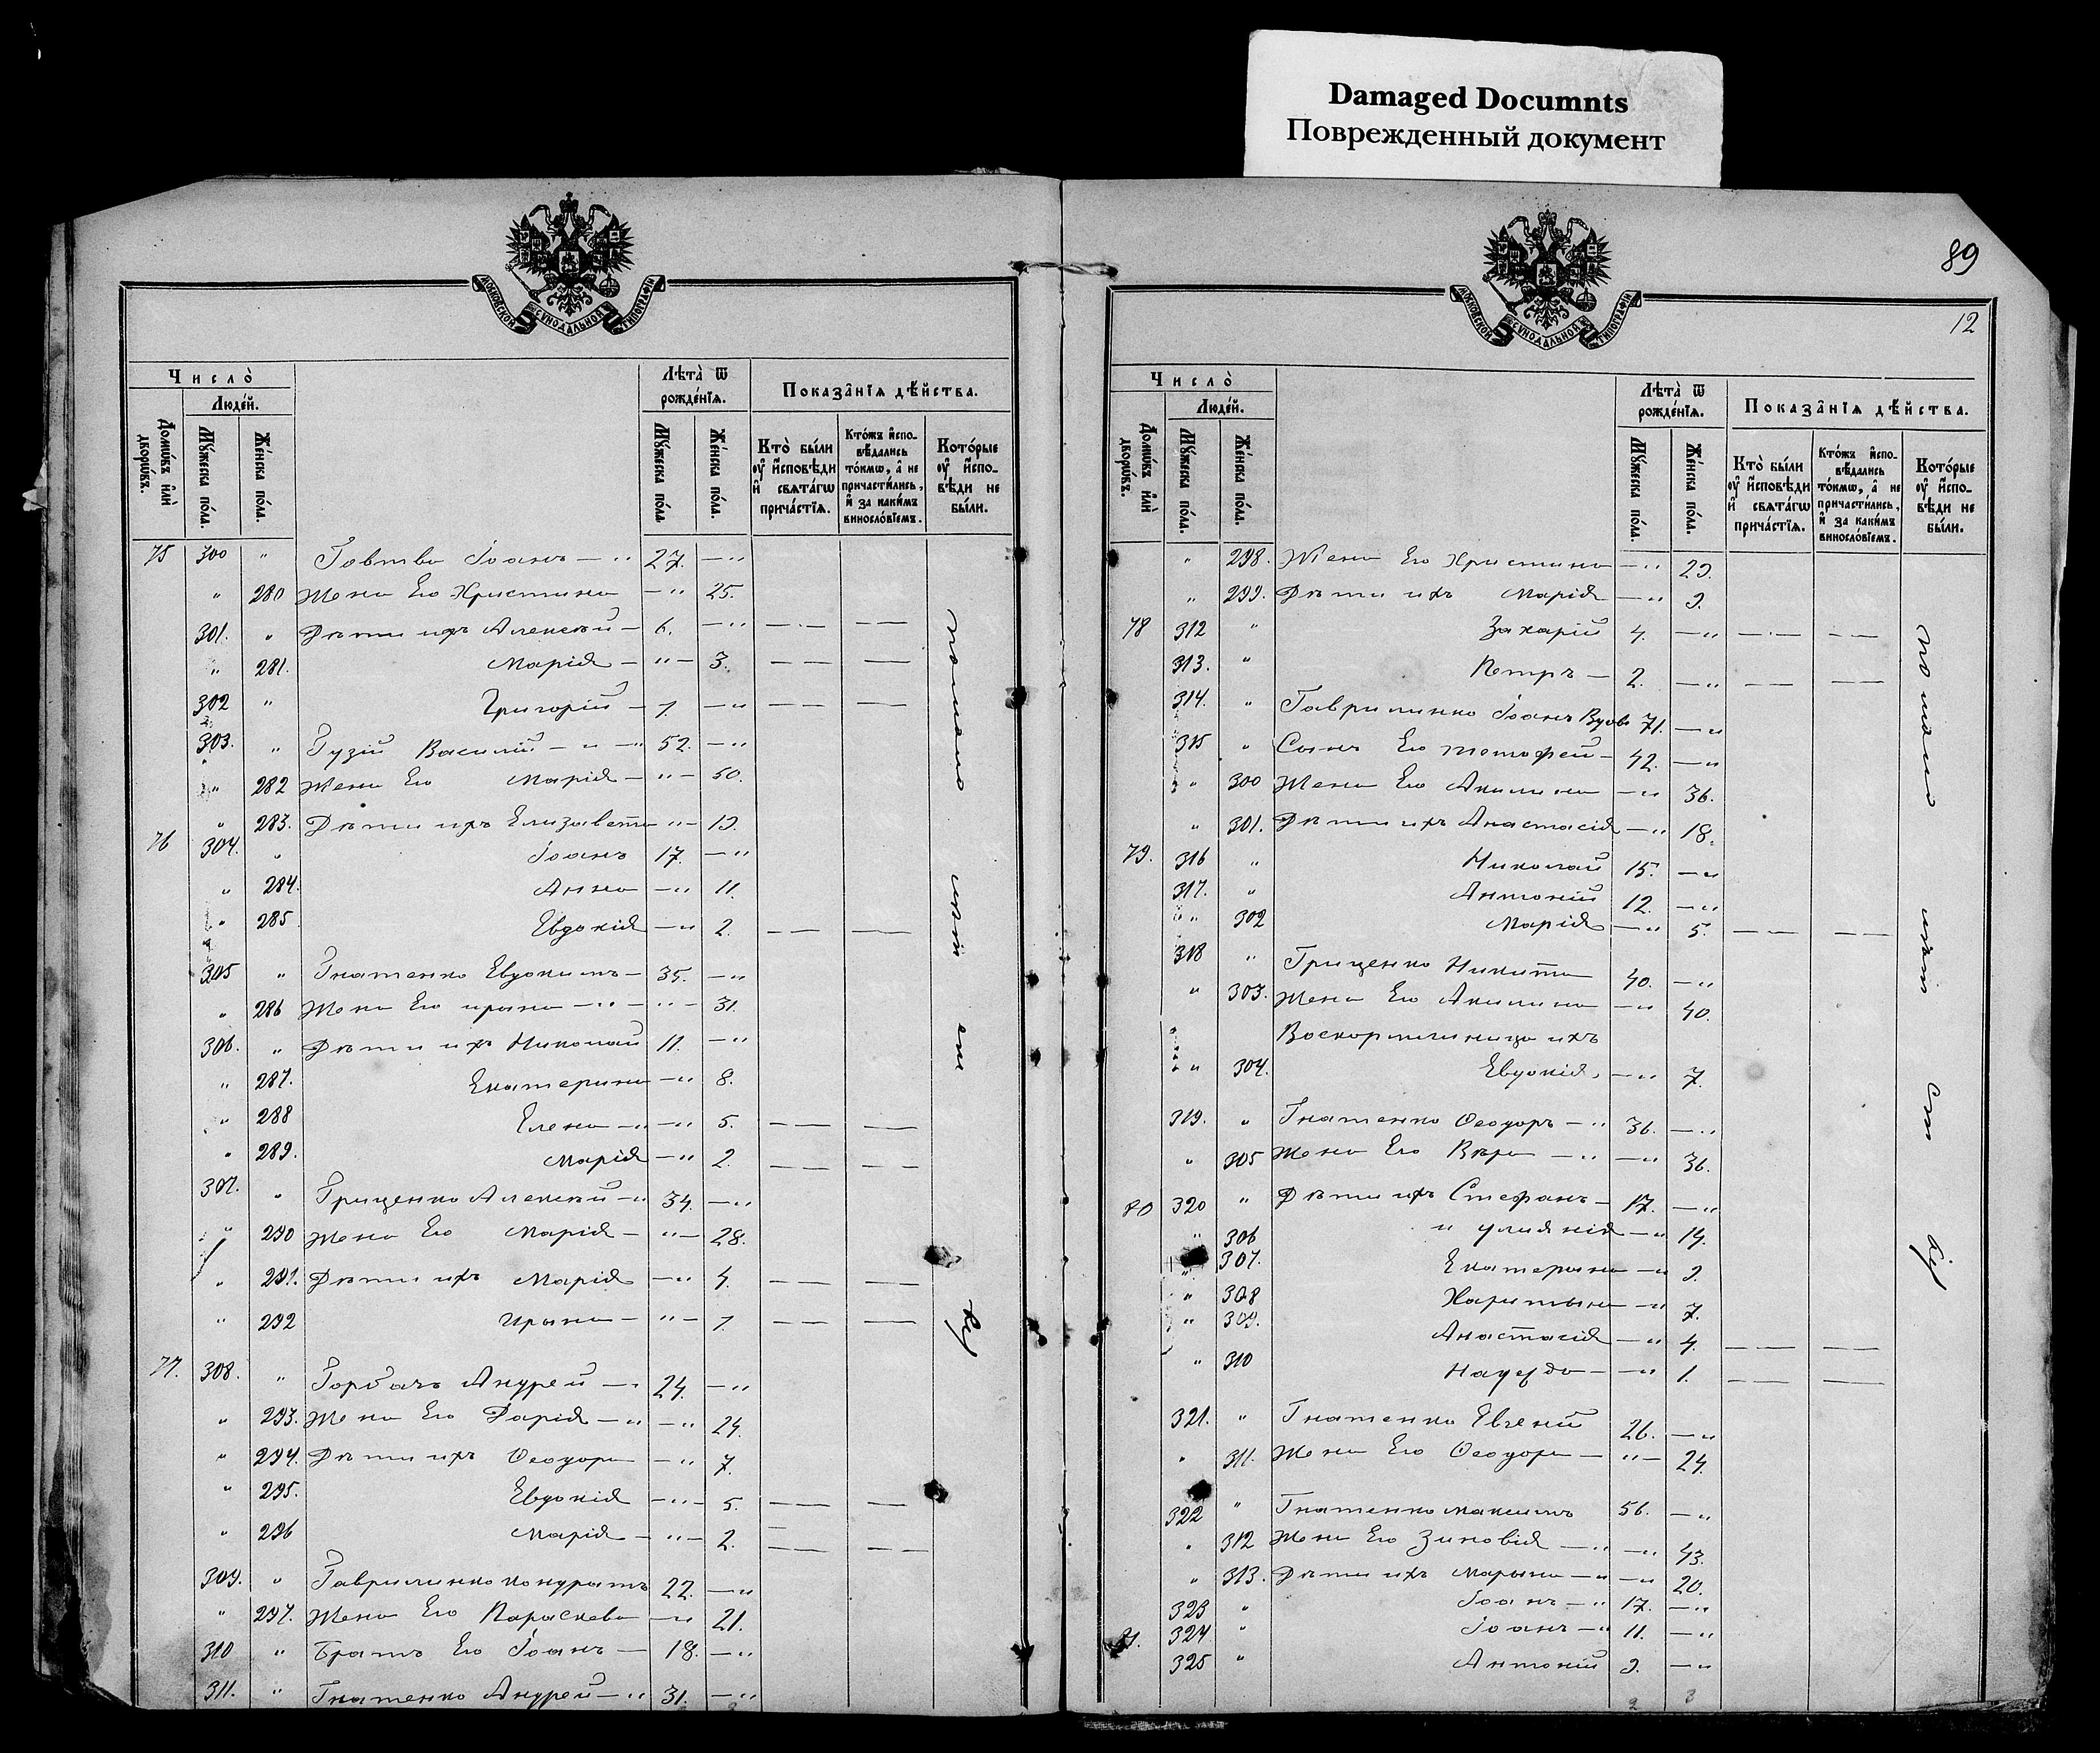 Damaged Documnts
Поврежденный документ
МОСКОВСКОЙ СѴНОДАЛЬНОЙ ТИПОГРАФІИ
Число̀
Людей.
Домѡвъ или дворѡвъ.
Мꙋжеска пола.
Женска пола.
Лѣта ѿ рожденїѧ.
Мꙋжеска пола
Женска пола.
Показанїѧ дѣйства.
Кто были ᲂу҆ исповѣди и свѧтагѡ причастїѧ.
Ктожъ исповѣдались токмѡ, а не причастились, и за какимъ винословїемъ.
Которые ᲂу҆ исповѣди не были.
75 300 " Товтва Іоанъ — " 27. — "
" 280 Жена Его Христина — " 25.
301. " Дѣти ихъ Алексѣй — 6. — "
" 281. Марія — " — 3.
302 " Григорій — 1. — "
303. " Гузій Василій — " — 52. — "
" 282 Жена Его Марія — " — 50.
" 283. Дѣти ихъ Елизавета " — 19.
76 304. " Іоанъ 17. — "
" 284. Анна — " 11.
" 285 Евдокія — " 2.
305 " Гнатенко Евдокимъ — 35. — "
" 286 Жена Его Ирина — " — " — 31.
306. " Дѣти ихъ Николай 11. — "
" 287. Екатерина — " 8.
" 288 Елена — " — " 5.
" 289. Марія — " 2.
307. " Гриценко Алексѣй — " 34. — "
" 290 Жена Его Марія — " — 28.
" 291. Дѣти ихъ Марія — " 4.
" 292 Ирина — " — 1.
77. 308. " Горбачъ Андрей — " 24. — "
" 293. Жена Его Дарія — " — " 24.
" 294. Дѣти ихъ Ѳеодора — " 7.
" 295. Евдокія — " — 5.
" 296 Марія — " — 2.
309. " Гавриленко Кондратъ 22. — "
" 297. Жена Его Параскева — " 21.
310 " Братъ Его Іоанъ — 18. — "
311. " Гнатенко Андрей — " 31. — "
89
12
МОСКОВСКОЙ СѴНОДАЛЬНОЙ ТИПОГРАФІИ
Число̀
Людей.
Домѡвъ или дворѡвъ.
Мꙋжеска пола.
Женска пола.
Лѣта ѿ рожденїѧ.
Мꙋжеска пола.
Женска пола.
Показанїѧ дѣйства.
Кто были ᲂу҆ исповѣди и свѧтагѡ причастїѧ.
Ктожъ исповѣдались токмѡ, а не причастились, и за какимъ винословїемъ.
Которые ᲂу҆ исповѣди не были.
" 298. Жена Его Христина — " 29.
" 299. Дѣти ихъ Марія — " 9.
78 312 " Захарій 4. — "
313. " Петръ — 2. — "
314. " Гавриленко Іоанъ Вдов 71. — "
315 " Сынъ Его Тимофей — 42. — "
" 300 Жена Его Акилина — " 36.
" 301. Дѣти ихъ Анастасія — " 18.
79. 316 " Николай 15. — "
317. " Антоній 12. — "
" 302 Марія — " 5.
318 " Гриценко Никита 40. — "
" 303. Жена Его Акилина — " 40.
Воскормленица ихъ
" 304. Евдокія — " 7.
319. " Гнатенко Ѳеодоръ — " 36. — "
" 305 Жена Его Вѣра — " — " 36.
80 320 " Дѣти ихъ Стефанъ — 17. — "
" 306 Иулианія — " 14.
" 307. Екатерина — " 9.
" 308 Харитына — " 7.
" 309. Анастасія — " 4.
" 310 — " 1.
321. " Гнатенко Евгеній 26. — "
" 311. Жена Его Ѳеодора — " — 24.
322 " Гнатенко Максимъ 56. — "
" 312 Жена Его Зиновія — " — " 43.
" 313. Дѣти ихъ Марына — " — " 20.
323 " Іоанъ — " 17. — "
81. 324 " Іоанъ — " 11. — "
325 " Антоній 9. — "